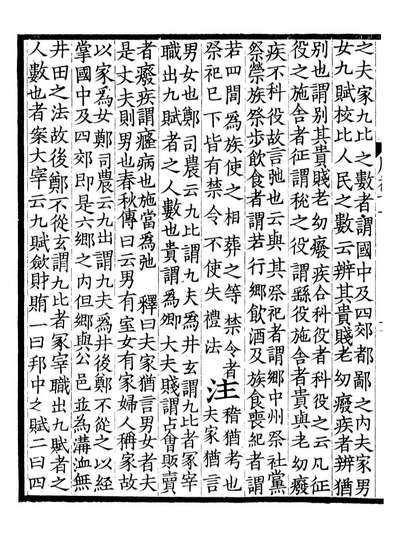 之夫家九比之數者謂國中及四郊都鄙之內夫家男
女九賦校比人民之數云辨其貴賤老幼癈疾者辨猶
別也謂別其貴賤老幼癈疾合科役者科役之云凡征
役之施舍者征謂稅之役謂繇役施舍者貴與老幼癈
疾不科役故言弛也云與其祭祀者謂鄉中州祭社黨
祭禜族祭步飲食者謂若行鄉飲酒及族食喪紀者謂
若四閭爲族使之相葬之等禁令者
祭祀已下皆有禁令不使失禮法
注
稽猶考也
夫家猶言
男女也鄭司農云九比謂九夫爲井玄謂九比者冢宰
職出九賦者之人數也貴謂爲卿大夫賤謂占會販賣
者癈疾謂癃病也施當爲弛 釋曰夫家猶言男女者夫
是丈夫則男也春秋傳曰云男有室女有家婦人稱家故
以家爲女鄭司農云九出謂九夫爲井後鄭不從之以經
掌國中及四郊即是六鄉之內但鄉與公邑並爲溝洫無
井田之法故後鄭不從玄謂九比者冢宰職出九賦者之
人數也者案大宰云九賦斂財賄一曰邦中之賦二曰四